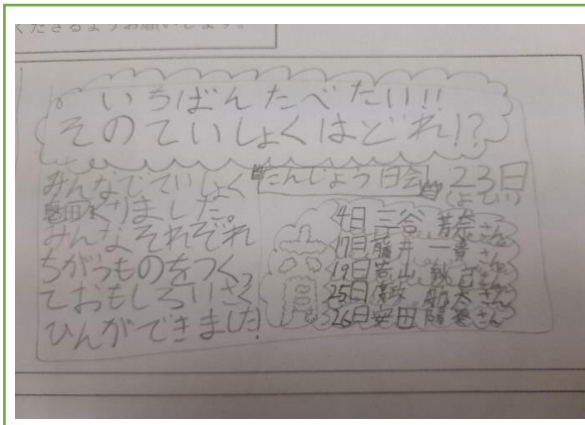 くださるようお願いします。
いちばんたべたい!!
そのていしょくはどれ!?
みんなでていしょく
くりました。
みんなそれぞれ
ちがうものをつくっ
ておもしろいさく
ひんができました!
たんじょう日会 23日
4日 三谷 さん
17日 藤井 一 さん
19日 山 さん
25日 さん
26日 安田 さん